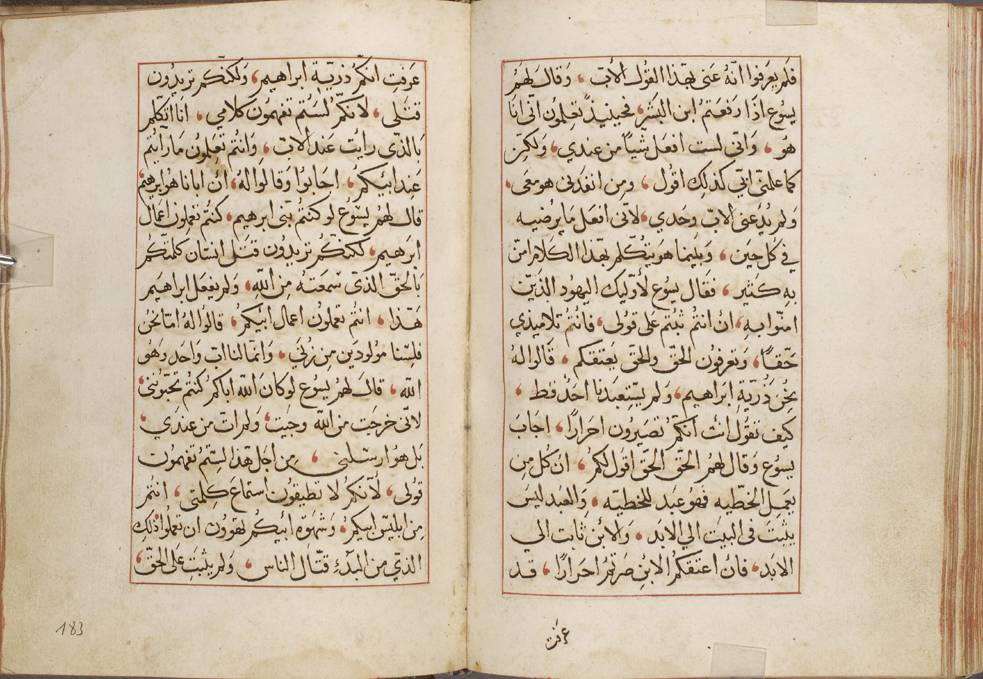 فلم يعرفوا انّه عنى بهذا القول الأب ، وقال لهم
يسوع اذا رفعتم ابن البشر، فحينيذ تعلمون انّي انا
هو ، واني لست افعل شياً من عندي، ولكن
كما علمني ابي كذلك اقول ، ومن انفذني هو معي ،
ولم يدعني الاب وحدي، لاني افعل ما يرضيه
في كل حين ، وبينما هو يتكلم بهذا الكلام امن
به كثير ، فقال يسوع لأوليك اليهود الذين
امنوا به ، ان انتم ثبتم على قولي ، فانتم تلاميذي
حقاً ، وتعرفون الحق والحق يعتقكم ، قالوا له
نحن ذرية ابراهيم ، ولم يستعبدنا احد قط ،
كيف تقول انت انكم تصيرون احراراً ، اجاب
يسوع وقال لهم الحق الحق اقول لكم ، ان كل من
يعمل الخطيه فهو عبد للخطيه ، والعبد ليس
يثبت في البيت الي الابد ، والابن ثابت الي
الابد ، فان اعتقكم الابن صرتم احراراً ، قد
عرفت
عرفت انكم ذرية ابراهيم ، ولكنكم تريدون
قتلي ، لانكم لستم تفهمون كلامي ، انا اتكلم
بالذي رايت عند الاب ، وانتم تعملون ما رأيتم
عند ابيكم ، اجابوا وقالوا له ، ان ابانا هو ابرهيم
قال لهم يسوع لو كنتم بني ابرهيم ، كنتم تعملون اعمال
ابرهيم ، لكنكم تريدون قتل انسان كلمكم
بالحق الذي سمعته من الله ، ولم يفعل ابراهيم
هذا ، انتم تعملون اعمال ابيكم ، قالوا له اما نحن
فلسنا مولودين من زنى ، وانما لنا اب واحد وهو
الله ، قال لهم يسوع لو كان الله اباكم كنتم تحبوني ،
لاني خرجت من الله وجيت ، ولم ات من عندي ،
بل هو ارسلني ، من اجل هذا لستم تفهمون
قولي ، لأنكم لا تطيقون استماع كلمتي ، انتم
من ابليس ابيكم ، وشهوه ابيكم تهوون ان تعملوا ذلك
الذي من البدء قتال الناس ، ولم يثبت على الحق ،
183